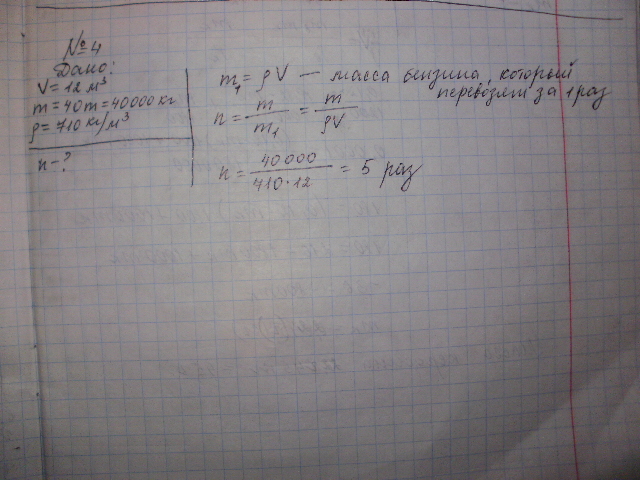 №4
Дано:
V = 12 м³
m = 40т = 40000 кг
ρ = 710 кг/м³
n - ?
m₁ = ρV — масса бензина, который
перевозят за 1 раз
n = m/m₁ = m/ρV
n = 40000/710·12 = 5 раз